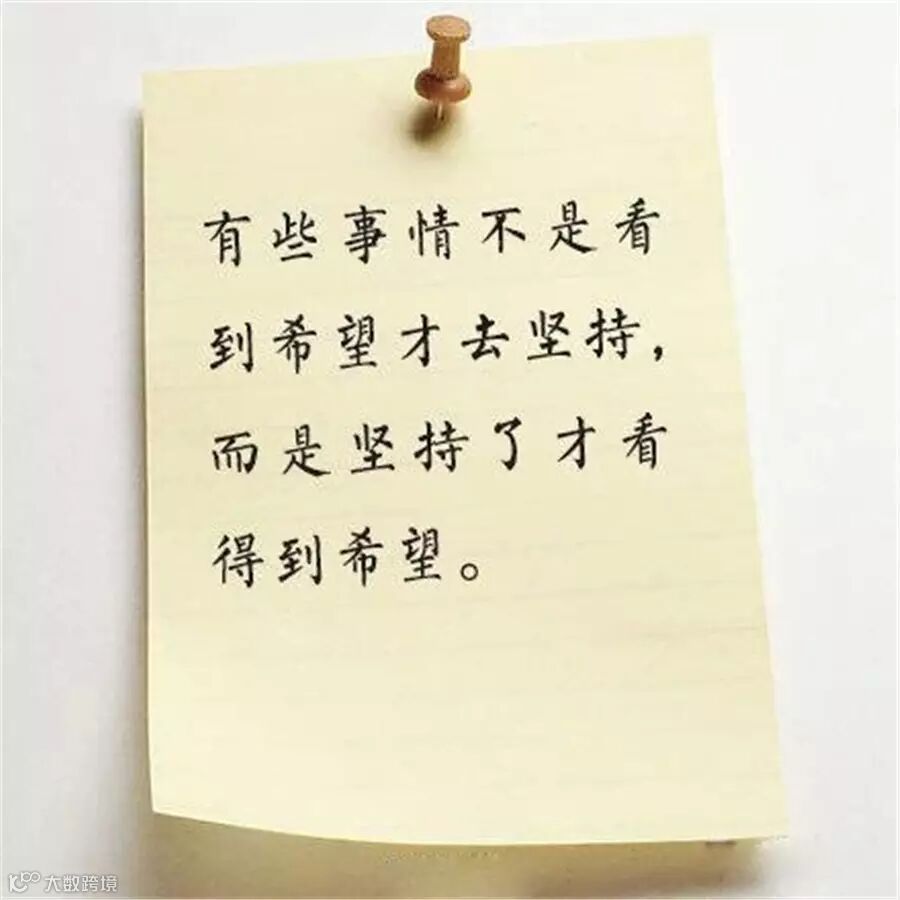 有些事情不是看
到希望才去坚持，
而是坚持了才看
得到希望。
大数跨境